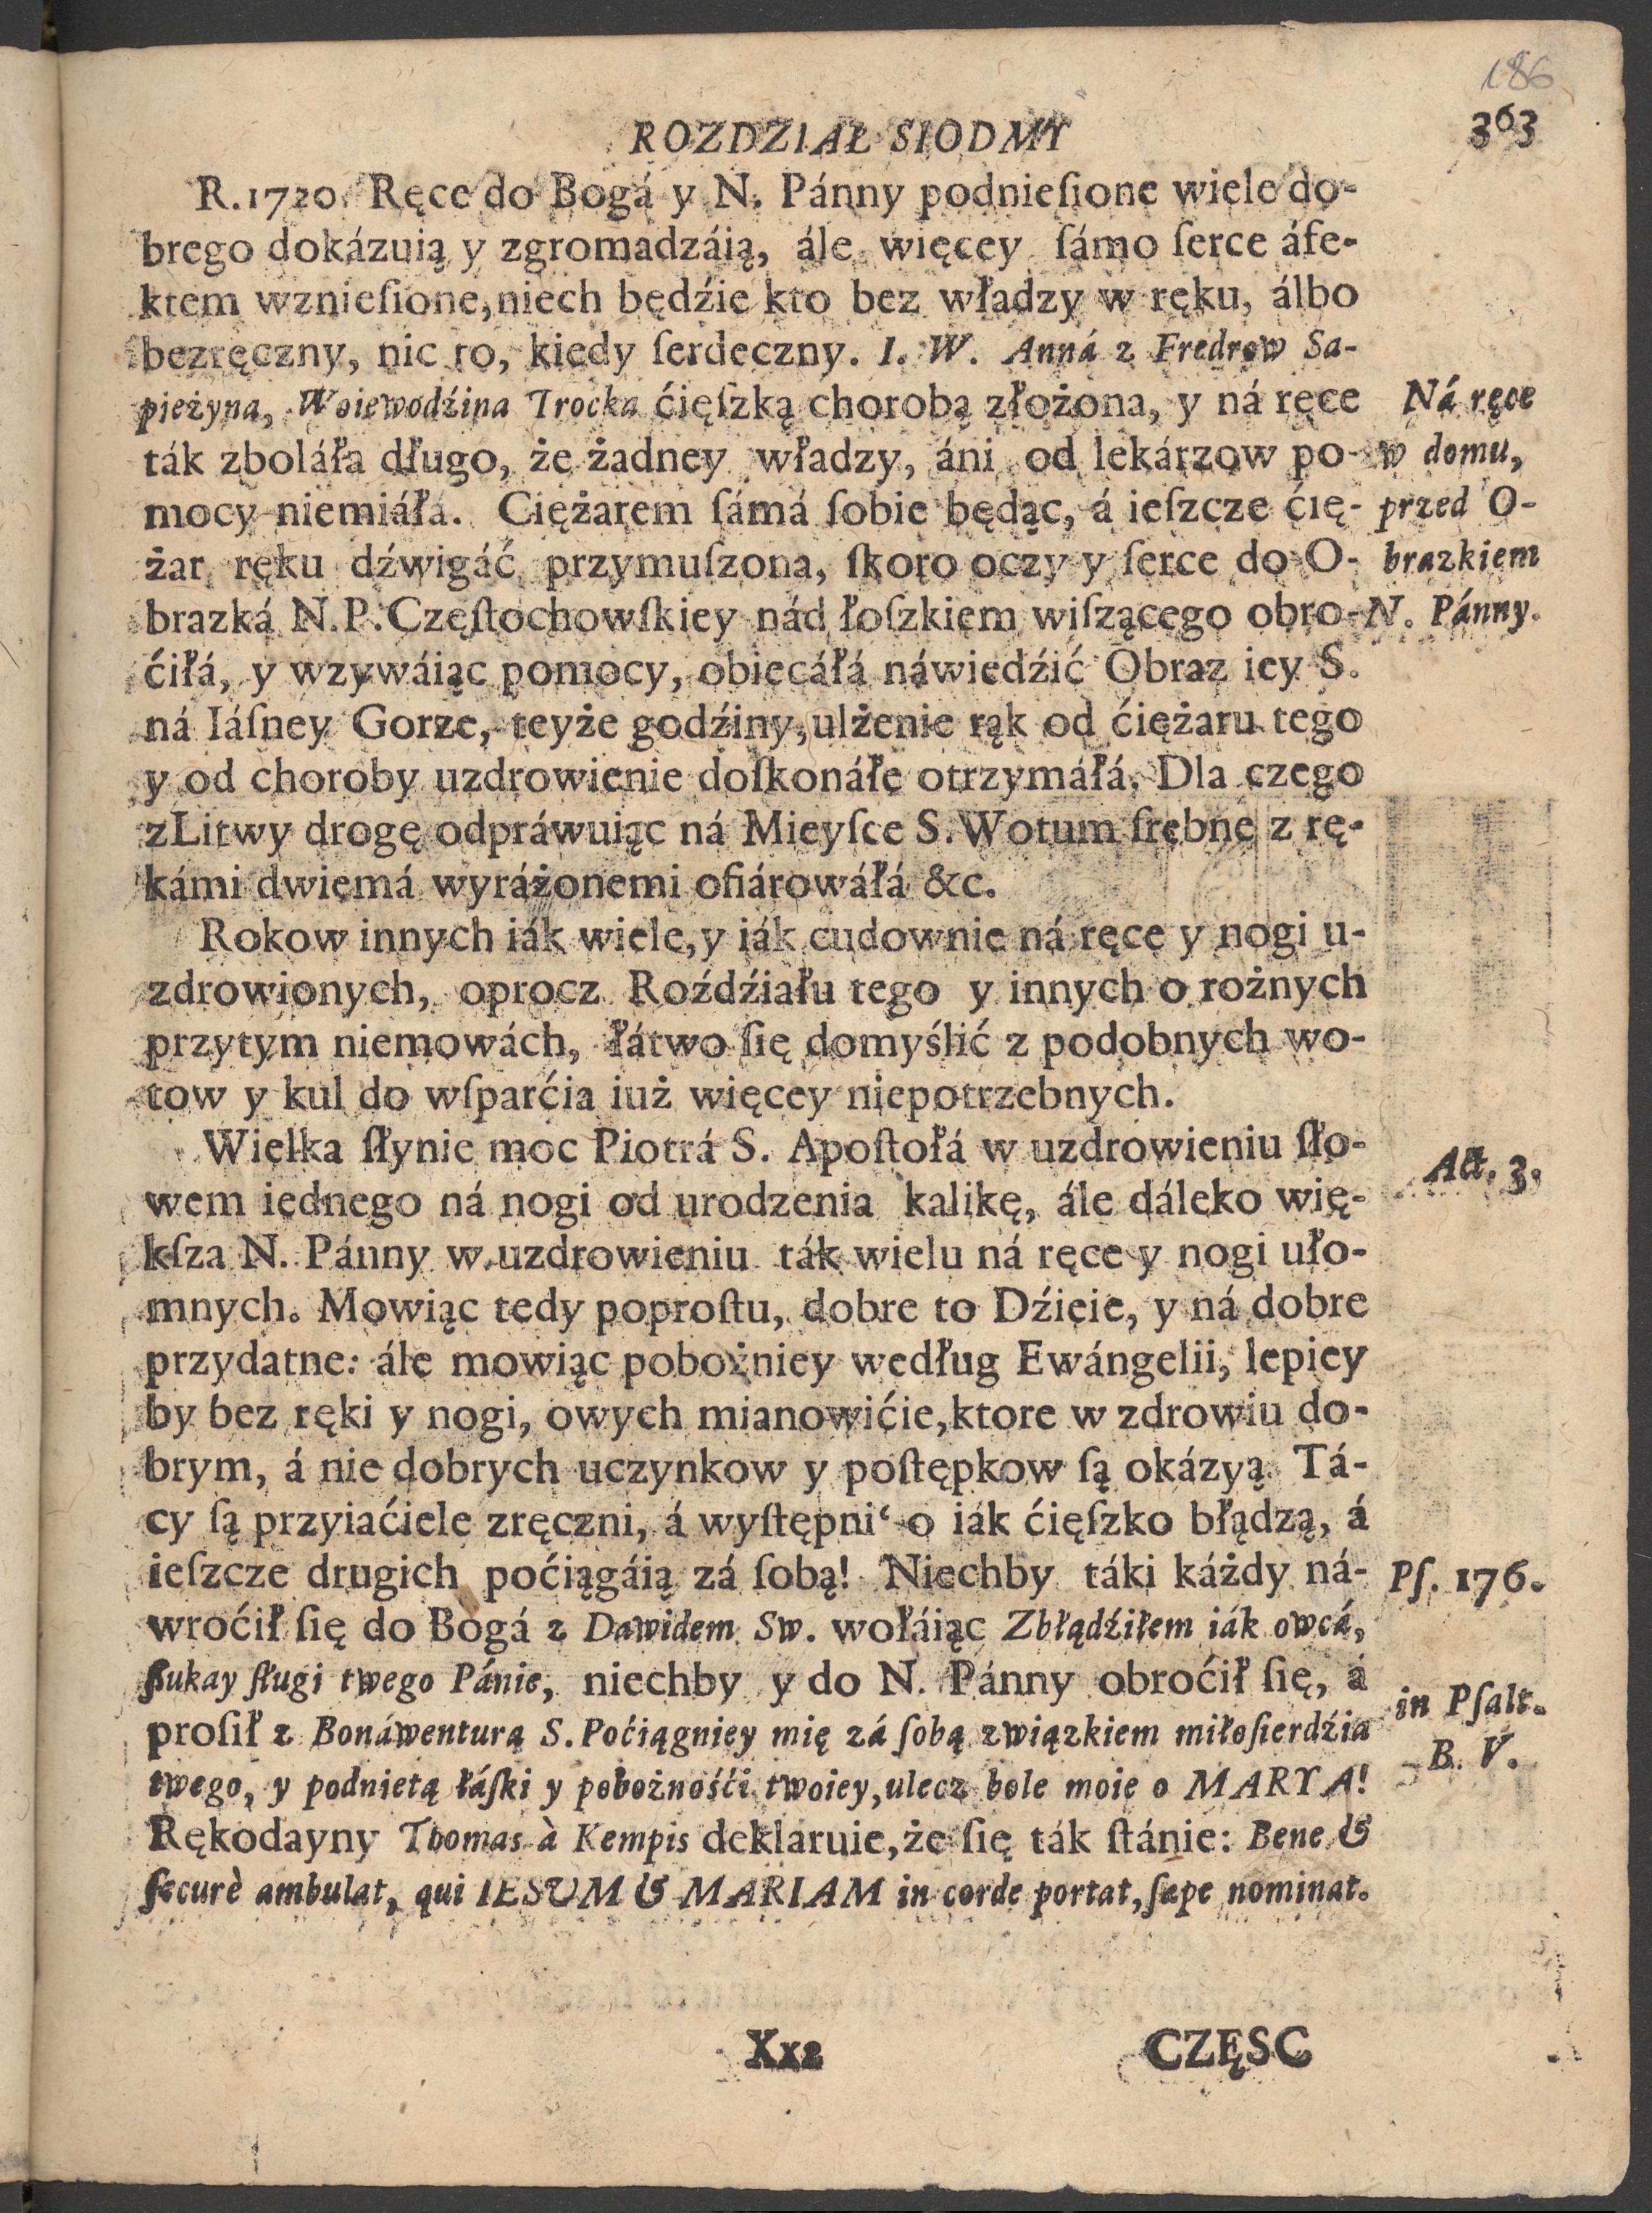 186
ROZDZIAŁ SIODMY
363
R. 1720. Ręce do Bogá y N. Pánny podnieſione wiele do-
brego dokázuią y zgromadzáią, ále więcey ſámo ſerce áfe-
ktem wznieſione, niech będźie kto bez władzy w ręku, álbo
bezręczny, nic to, kiedy ſerdeczny. I. W. Anná z Fredrow Sa-
pieżyna, Woiewodźina Trocka ćięſzką chorobą złożona, y ná ręce
Ná ręce
ták zboláła długo, że żadney władzy, áni od lekárzow po-
w domu,
mocy niemiáłá. Ciężarem ſámá ſobie będąc, á ieſzcze ćię-
przed O-
żar ręku dźwigáć przymuſzona, ſkoro oczy y ſerce do O-
brazkiem
brazká N. P. Częſtochowſkiey nád łoſzkiem wiſzącego obro-
N. Pánny.
ćiłá, y wzywáiąc pomocy, obiecáłá náwiedźić Obraz iey S.
ná Iáſney Gorze, teyże godźiny, ulżenie rąk od ćiężaru tego
y od choroby uzdrowienie doſkonáłe otrzymáłá. Dla czego
z Litwy drogę odpráwuiąc ná Mieyſce S. Wotum ſrebne z rę-
kámi dwiemá wyráżonemi ofiárowáłá &c.
Rokow innych iák wiele, y iák cudownie ná ręce y nogi u-
zdrowionych, oprocz Roźdźiału tego y innych o rożnych
przytym niemowách, łátwo ſię domyślić z podobnych wo-
tow y kul do wſparćia iuż więcey niepotrzebnych.
Wielka ſłynie moc Piotrá S. Apoſtołá w uzdrowieniu ſło-
Act. 3.
wem iednego ná nogi od urodzenia kalikę, ále dáleko wię-
kſza N. Pánny w uzdrowieniu ták wielu ná ręce y nogi uło-
mnych. Mowiąc tedy poproſtu, dobre to Dźieie, y ná dobre
przydatne: ále mowiąc pobożniey według Ewángelii, lepiey
by bez ręki y nogi, owych mianowićie, ktore w zdrowiu do-
brym, á nie dobrych uczynkow y poſtępkow ſą okázyą. Tá-
cy ſą przyiaćiele zręczni, á wyſtępni‘ o iák ćięſzko błądzą, á
ieſzcze drugich poćiągáią zá ſobą! Niechby táki káżdy ná-
Pſ. 176.
wroćił ſię do Bogá z Dawidem Sw. wołáiąc Zbłądźiłem iák owcá,
ſzukay ſługi twego Pánie, niechby y do N. Pánny obroćił ſię, á
proſił z Bonáwenturą S. Poćiągniey mię zá ſobą związkiem miłoſierdźia
in Pſalt.
B. V.
twego, y podnietą łáſki y pobożnośći twoiey, ulecz bole moie o MARYA!
Rękodayny Thomas à Kempis deklaruie, że ſię ták ſtánie: Bene &
ſecurè ambulat, qui IESUM & MARIAM in corde portat, ſæpe nominat.
Xx2
CZĘSC